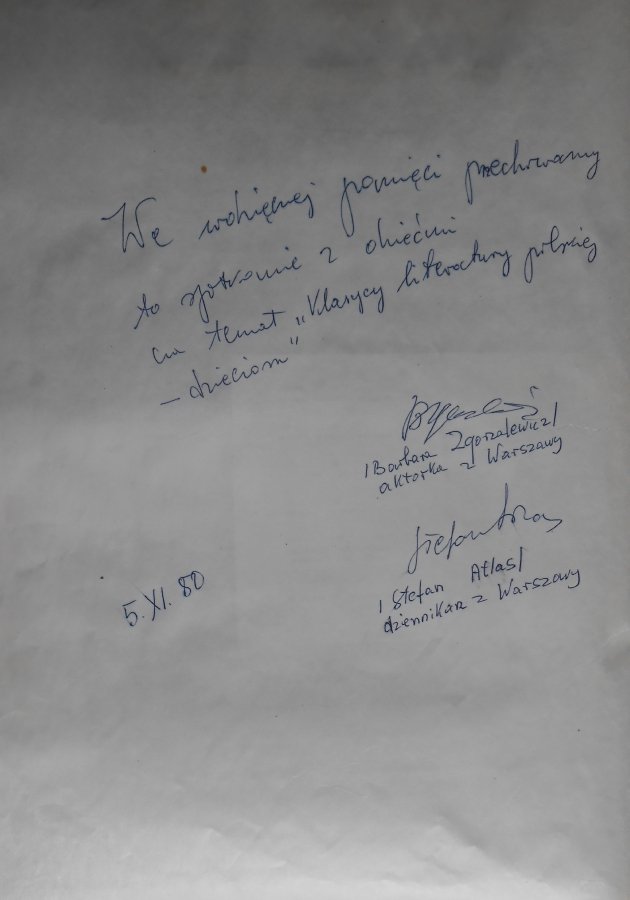 We wdzięcznej pamięci przechowamy
to spotkanie z dziećmi
na temat „Klasycy literatury polskiej
– dzieciom"
/Barbara Zgorzalewicz/
aktorka z Warszawy
Stefan Atlas
/Stefan Atlas/
dziennikarz z Warszawy
5.XI.80